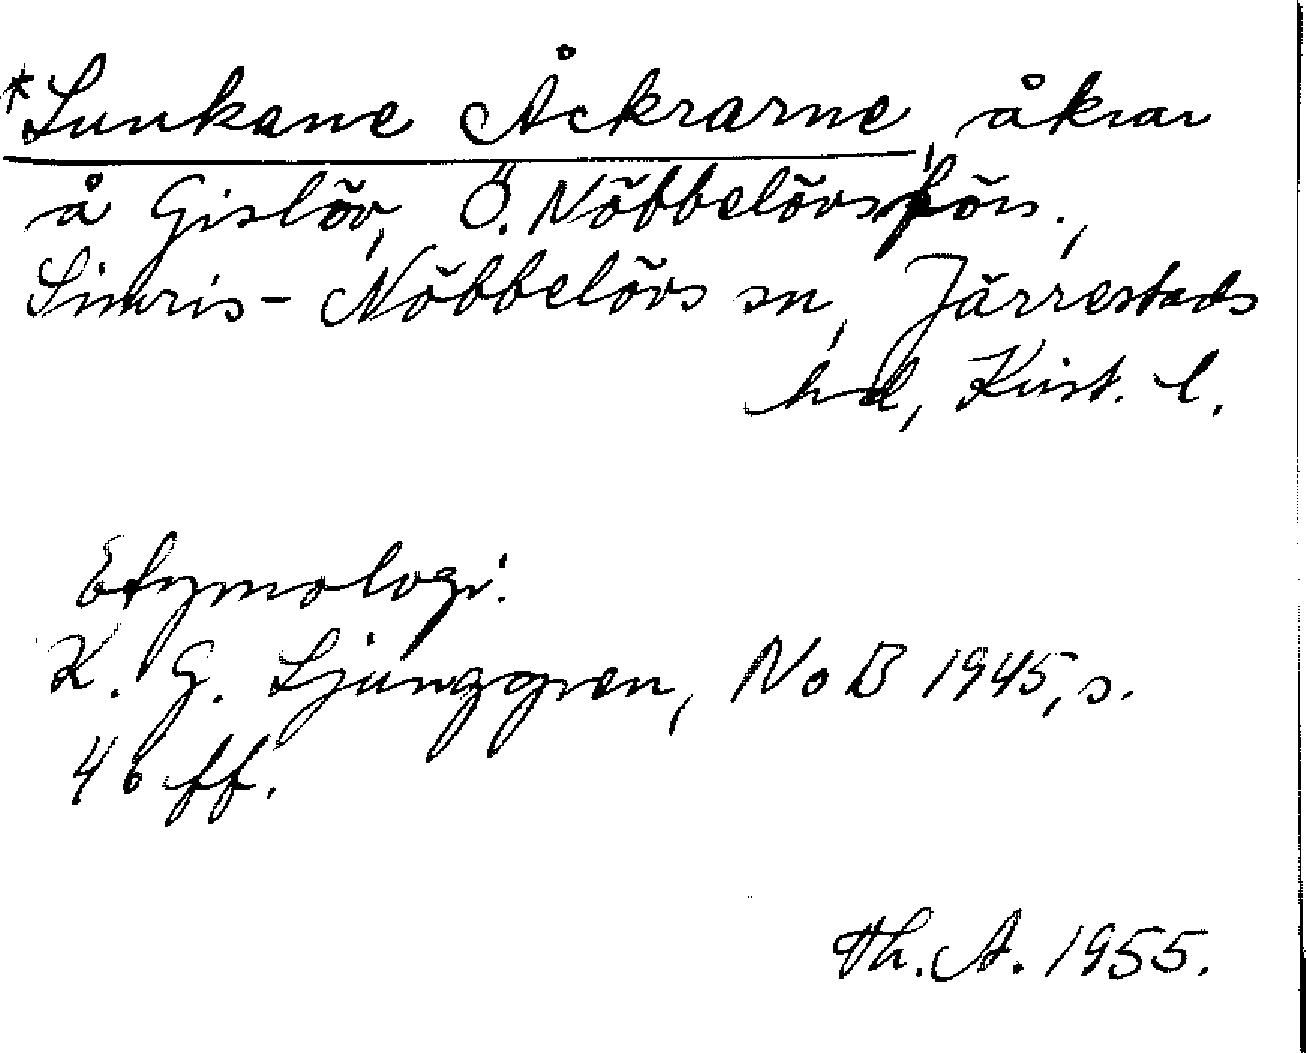 *Lunkane Åckrarne, åkrar
å Gislöv, Ö. Nöbbelövs förs.,
Simris-Nöbbelövs sn, Järrestads
hd, Krist. l.
Etymologi:
K. G. Ljunggren, NoB 1945, s.
46 ff.
Th. A. 1955.